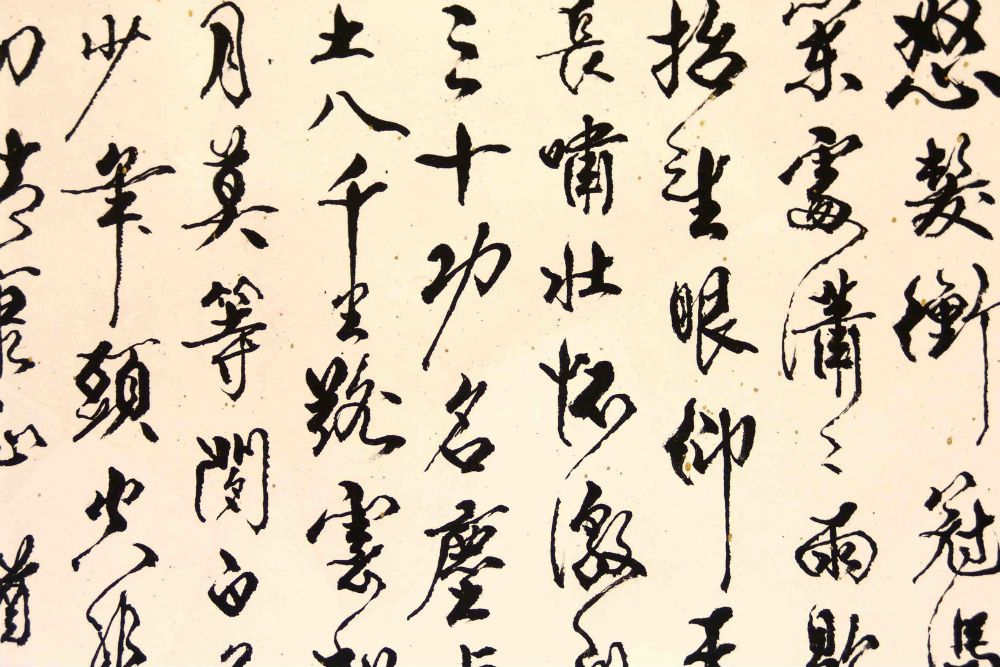 怒髮衝冠
處瀟〻雨
抬望眼仰天
長嘯壯懷激
三十功名塵
土八千里路雲和
月莫等閒白
少年頭空悲
切靖康恥猶